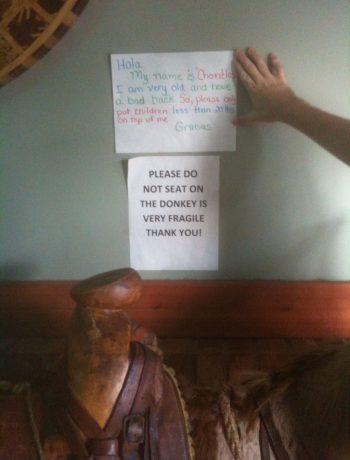 Hola
My name is
I am very old and have
a bad back So, please only
put children less than
on top of me
PLEASE DO
NOT SEAT ON
THE DONKEY IS
VERY FRAGILE
THANK YOU!